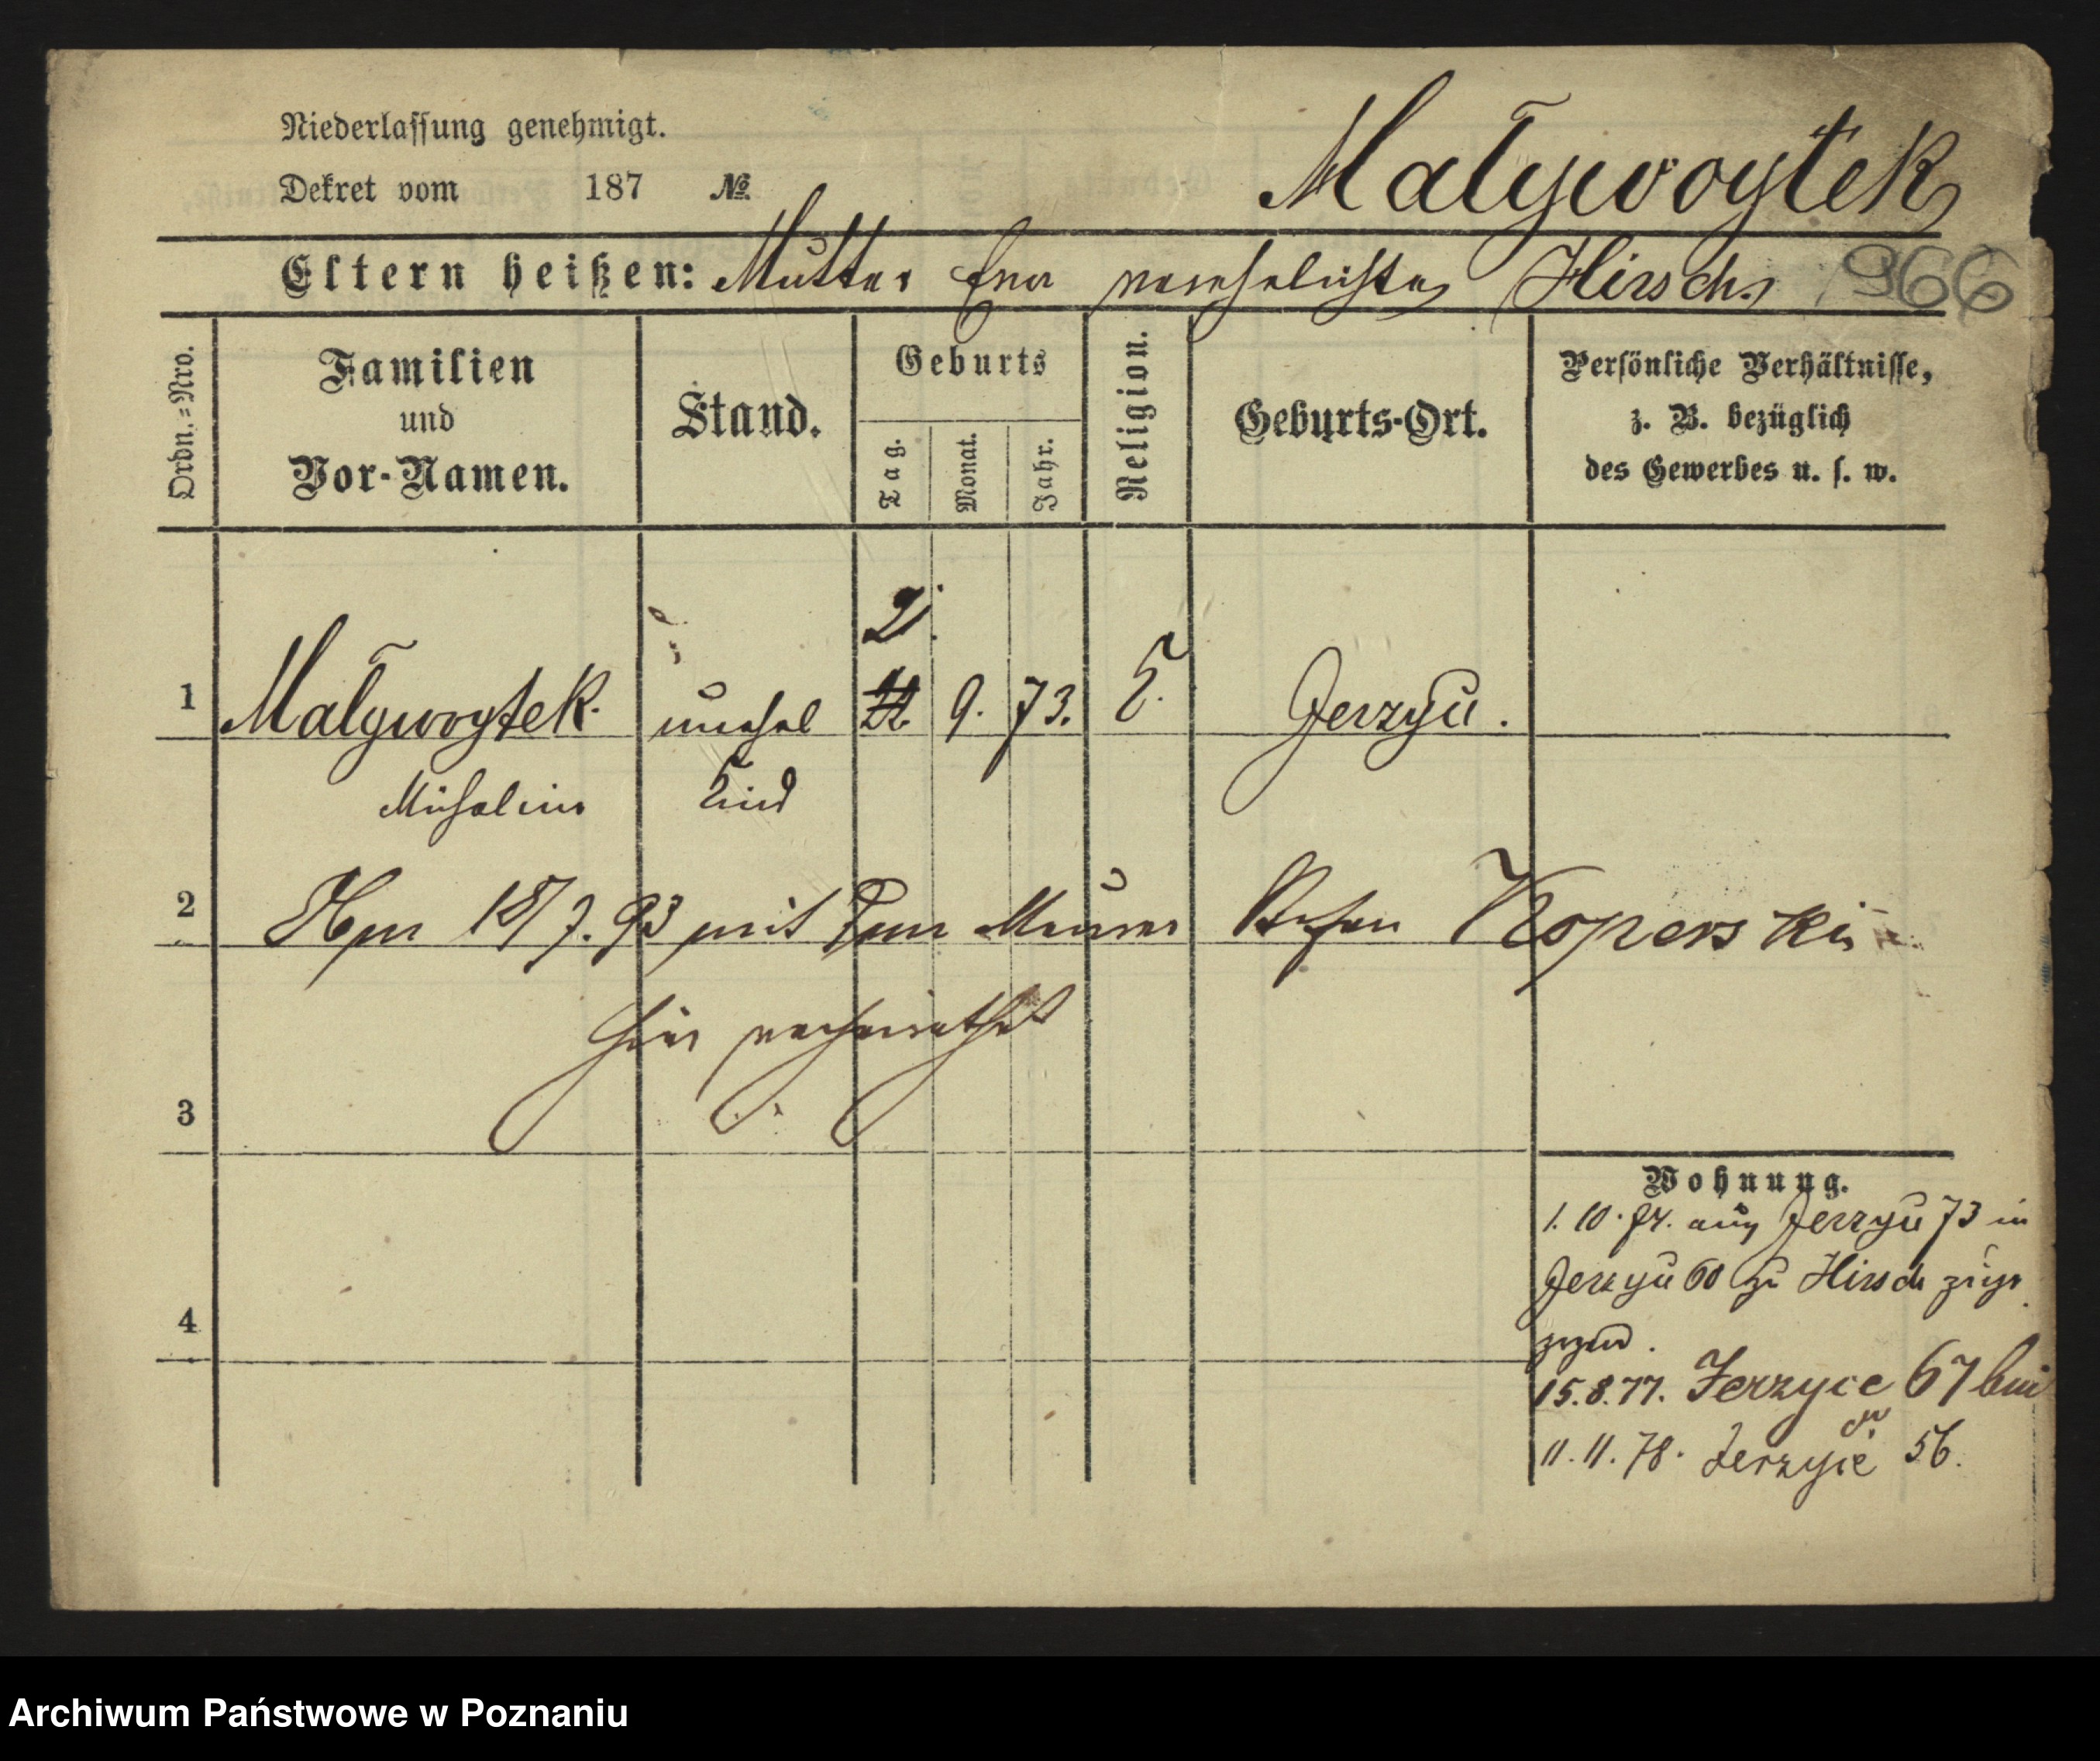 Niederlassung genehmigt.
Dekret vom 187 №
Maływoytek
Eltern heißen: Mutter Eva verehelichte Hirsch
966
Ordn.=Nro.
Familien
und
Vor-Namen.
Stand.
Geburts
Tag.
Monat.
Jahr.
Religion.
Geburts-Ort.
Persönliche Verhältnisse,
z. B. bezüglich
des Gewerbes u. s. w.
2.
1 Maływoytek unehel 9. 73. k. Jerzyce.
Michalina Kind
2 18/7. 93 mit dem Maurer Stefan Koperski
hier verheirathet
3
Wohnung.
1. 10. 74. aus Jerzyce 73 in
Jerzyce 60 zu Hirsch zuge
zogen.
4
15.8.77. Jerzyce 67 bei
11. 11. 78. Jerzyce 56.
Archiwum Państwowe w Poznaniu